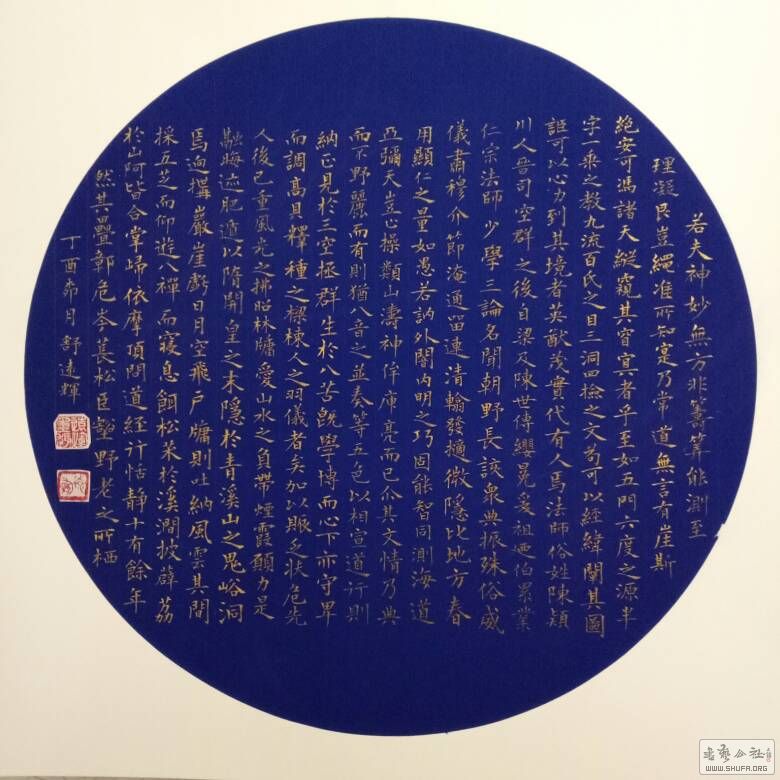 若夫神妙無方非籌算能測至
理凝艮豈繩准所知寔乃常道無言有崖斯
絕安可馮諸天縱窺其窅冥者乎至如五門六度之源半
字一乘之教九流百氏之目三洞四撿之文苟可以經緯闡其圖
詎可以心力到其境者英猷茂實代有人焉法師俗姓陳穎
川人晉司空群之後自梁及陳世傳纓冕爰祖迺伯累業
仁宗法師少學三論名聞朝野長該衆典振殊俗威
儀肅穆介節淹通留連清翰發擿微隱比地方春
用顯仁之量如愚若訥外闇內明之巧固能智同測海道
亞彌天豈止操類山濤神侔庾亮而已尒其文情乃典
而不野麗而有則猶八音之並奏等五色以相宣道行則
納正見於三空拯群生於八苦旣學博而心下亦守卑
而調高具釋種之樑棟人之羽儀者矣加以賑乏扶危先
人後已重風光之拂昭林牖愛山水之負帶煙霞願力是
融晦迹肥遁以隋開皇之末隱於青溪山之鬼峪洞
焉迥構巖崖虧日月空飛戶牖則吐納風雲其間
採五芝而仰遊八禪而寢息餌松朮於溪澗披薜荔
於山阿皆合掌歸依摩頂問道經計恬靜十有餘年
然其疊彰危岑萇松臣壑野老之所栖
丁酉茆月舒遠輝
書藝公社
WWW.SHUFA.ORG